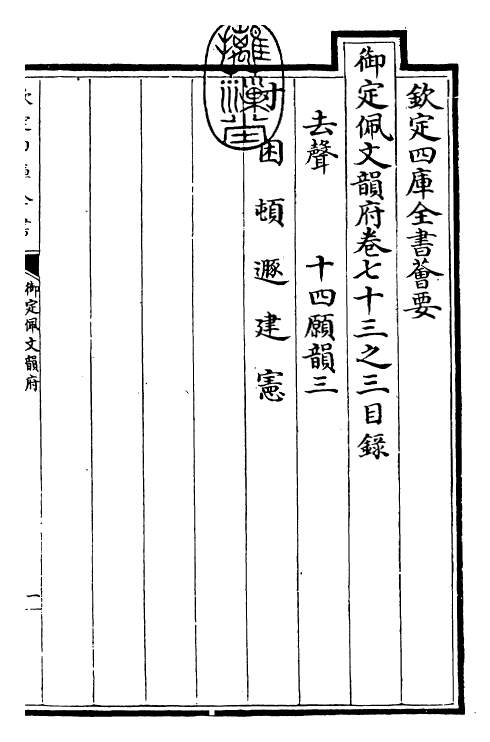 欽定四庫全書薈要
御定佩文韻府卷七十三之三目錄
去聲　十四願韻三
寸　困　頓　遯　建　憲
欽定四庫全書
御定佩文韻府
一